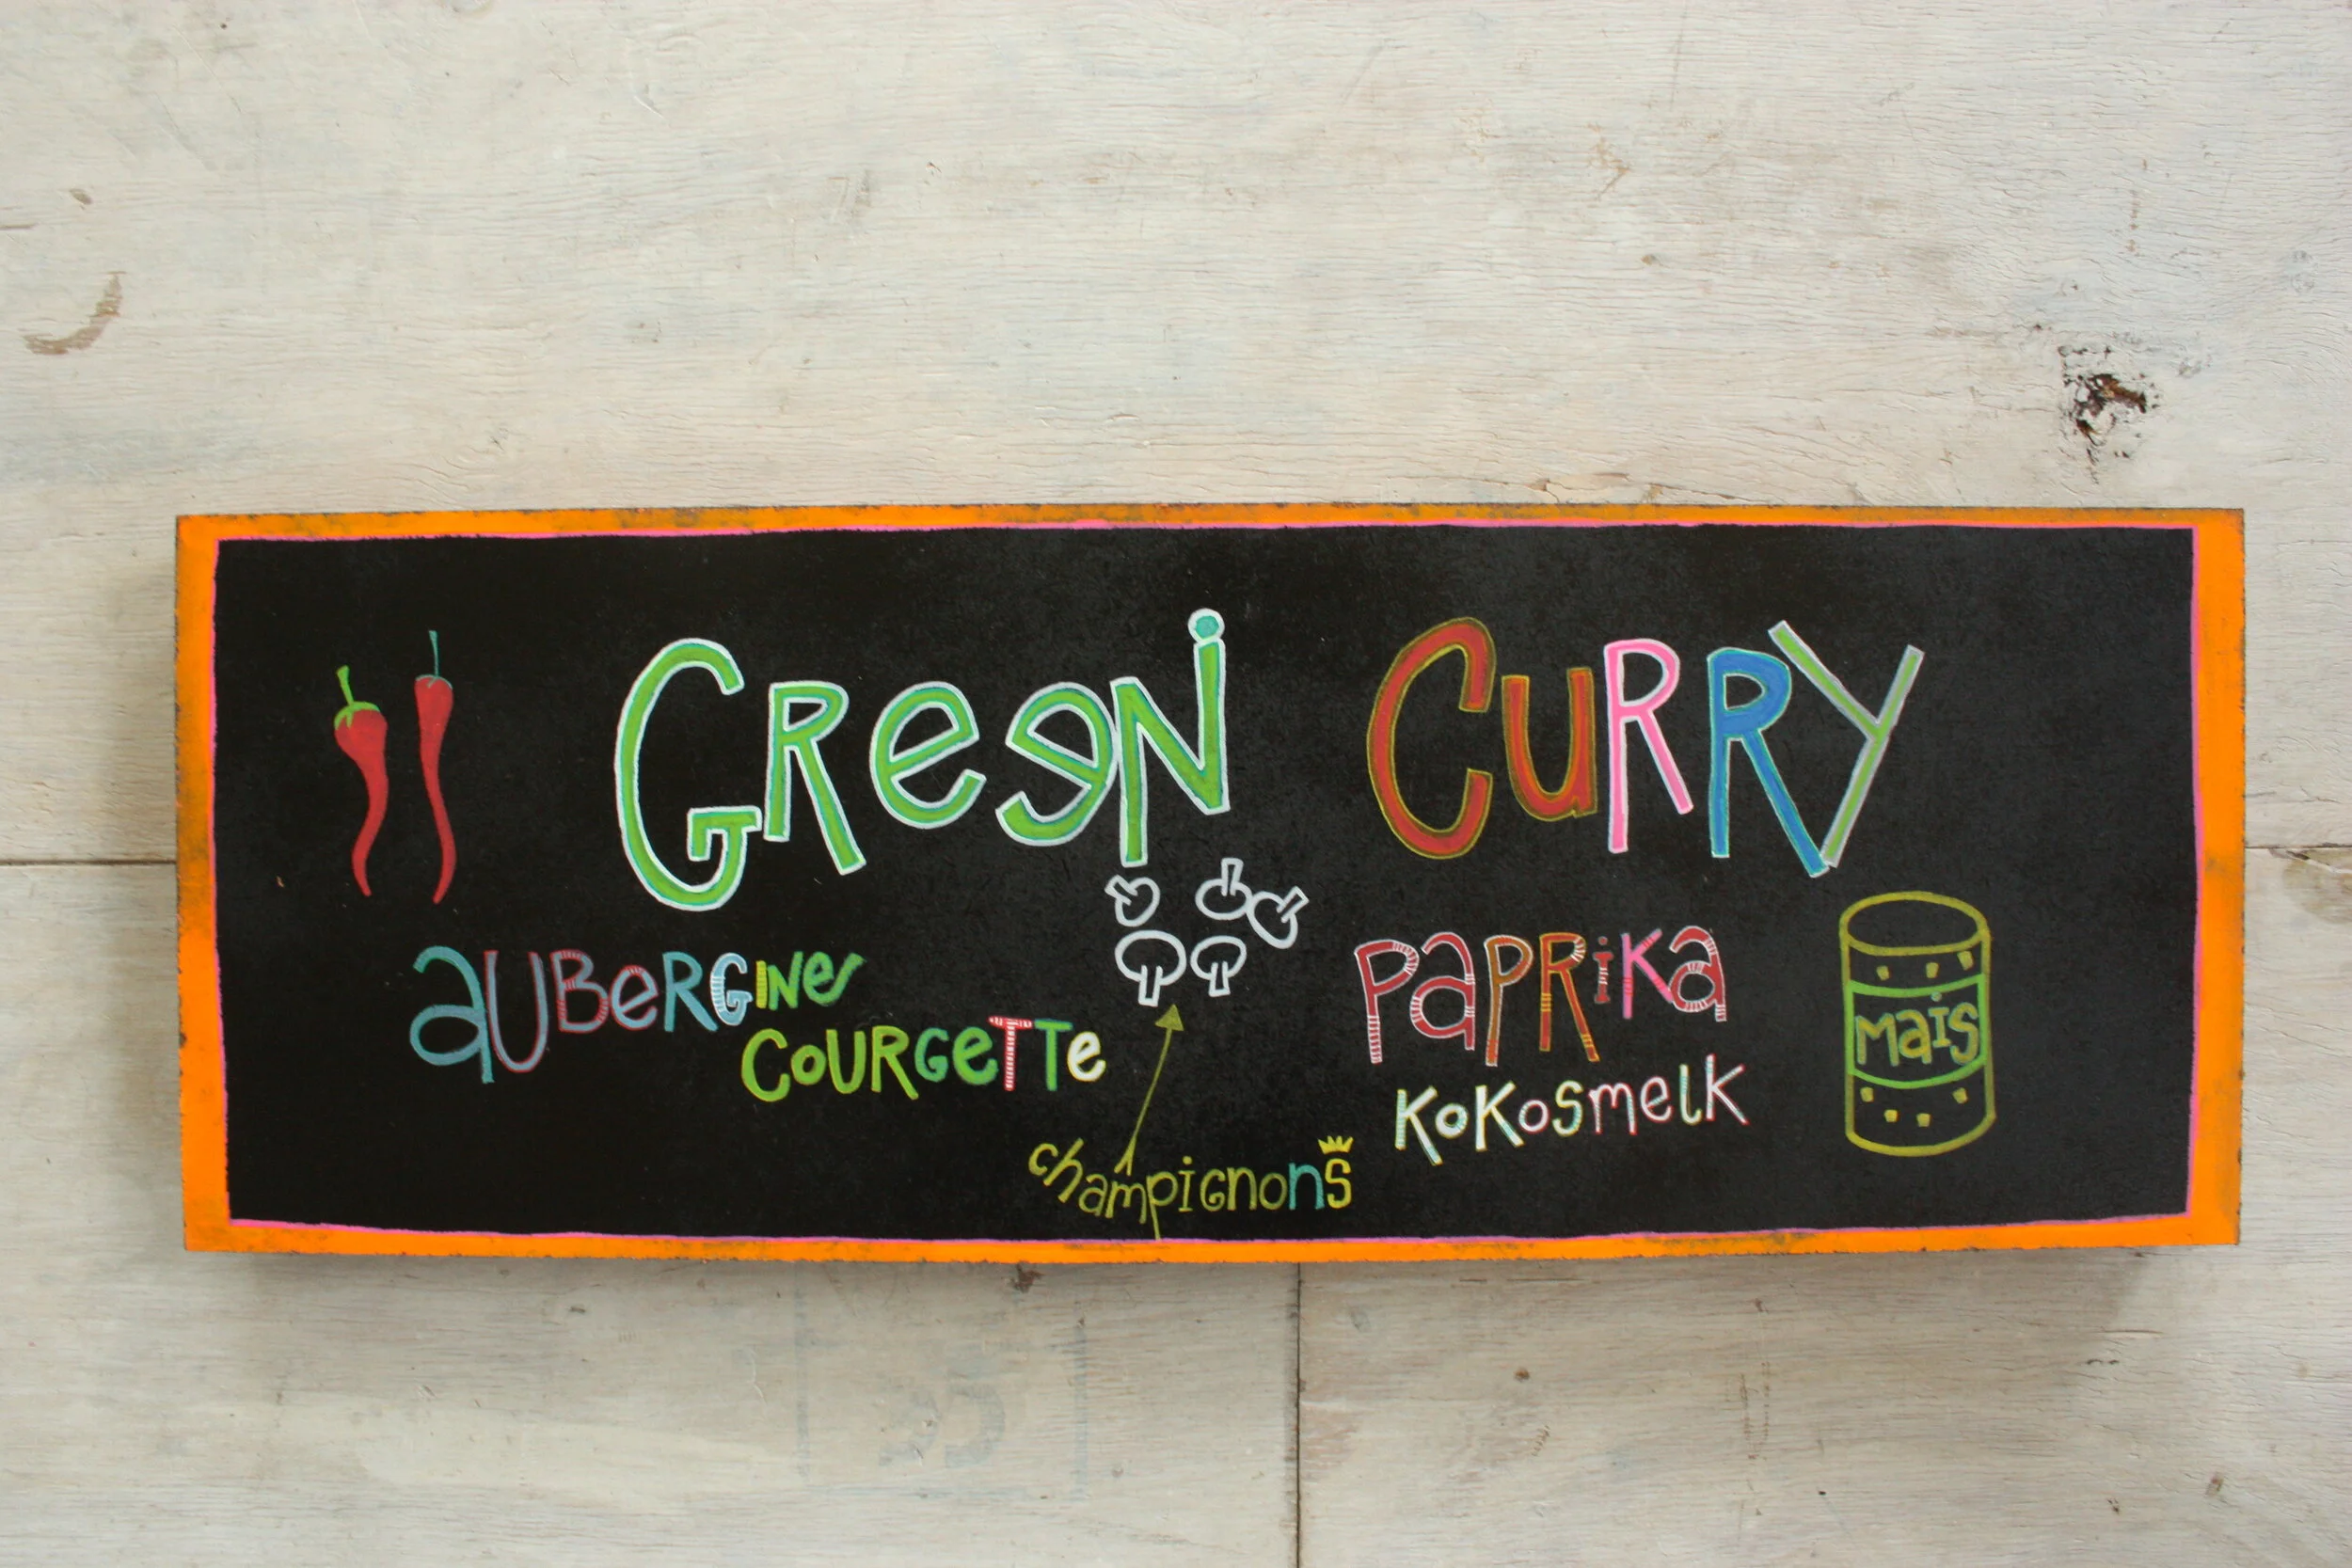 GReeN CuRRY
auBeRGiNe
CouRGeTTe
PaPRiKa
KoKosmelK
mais
champignons